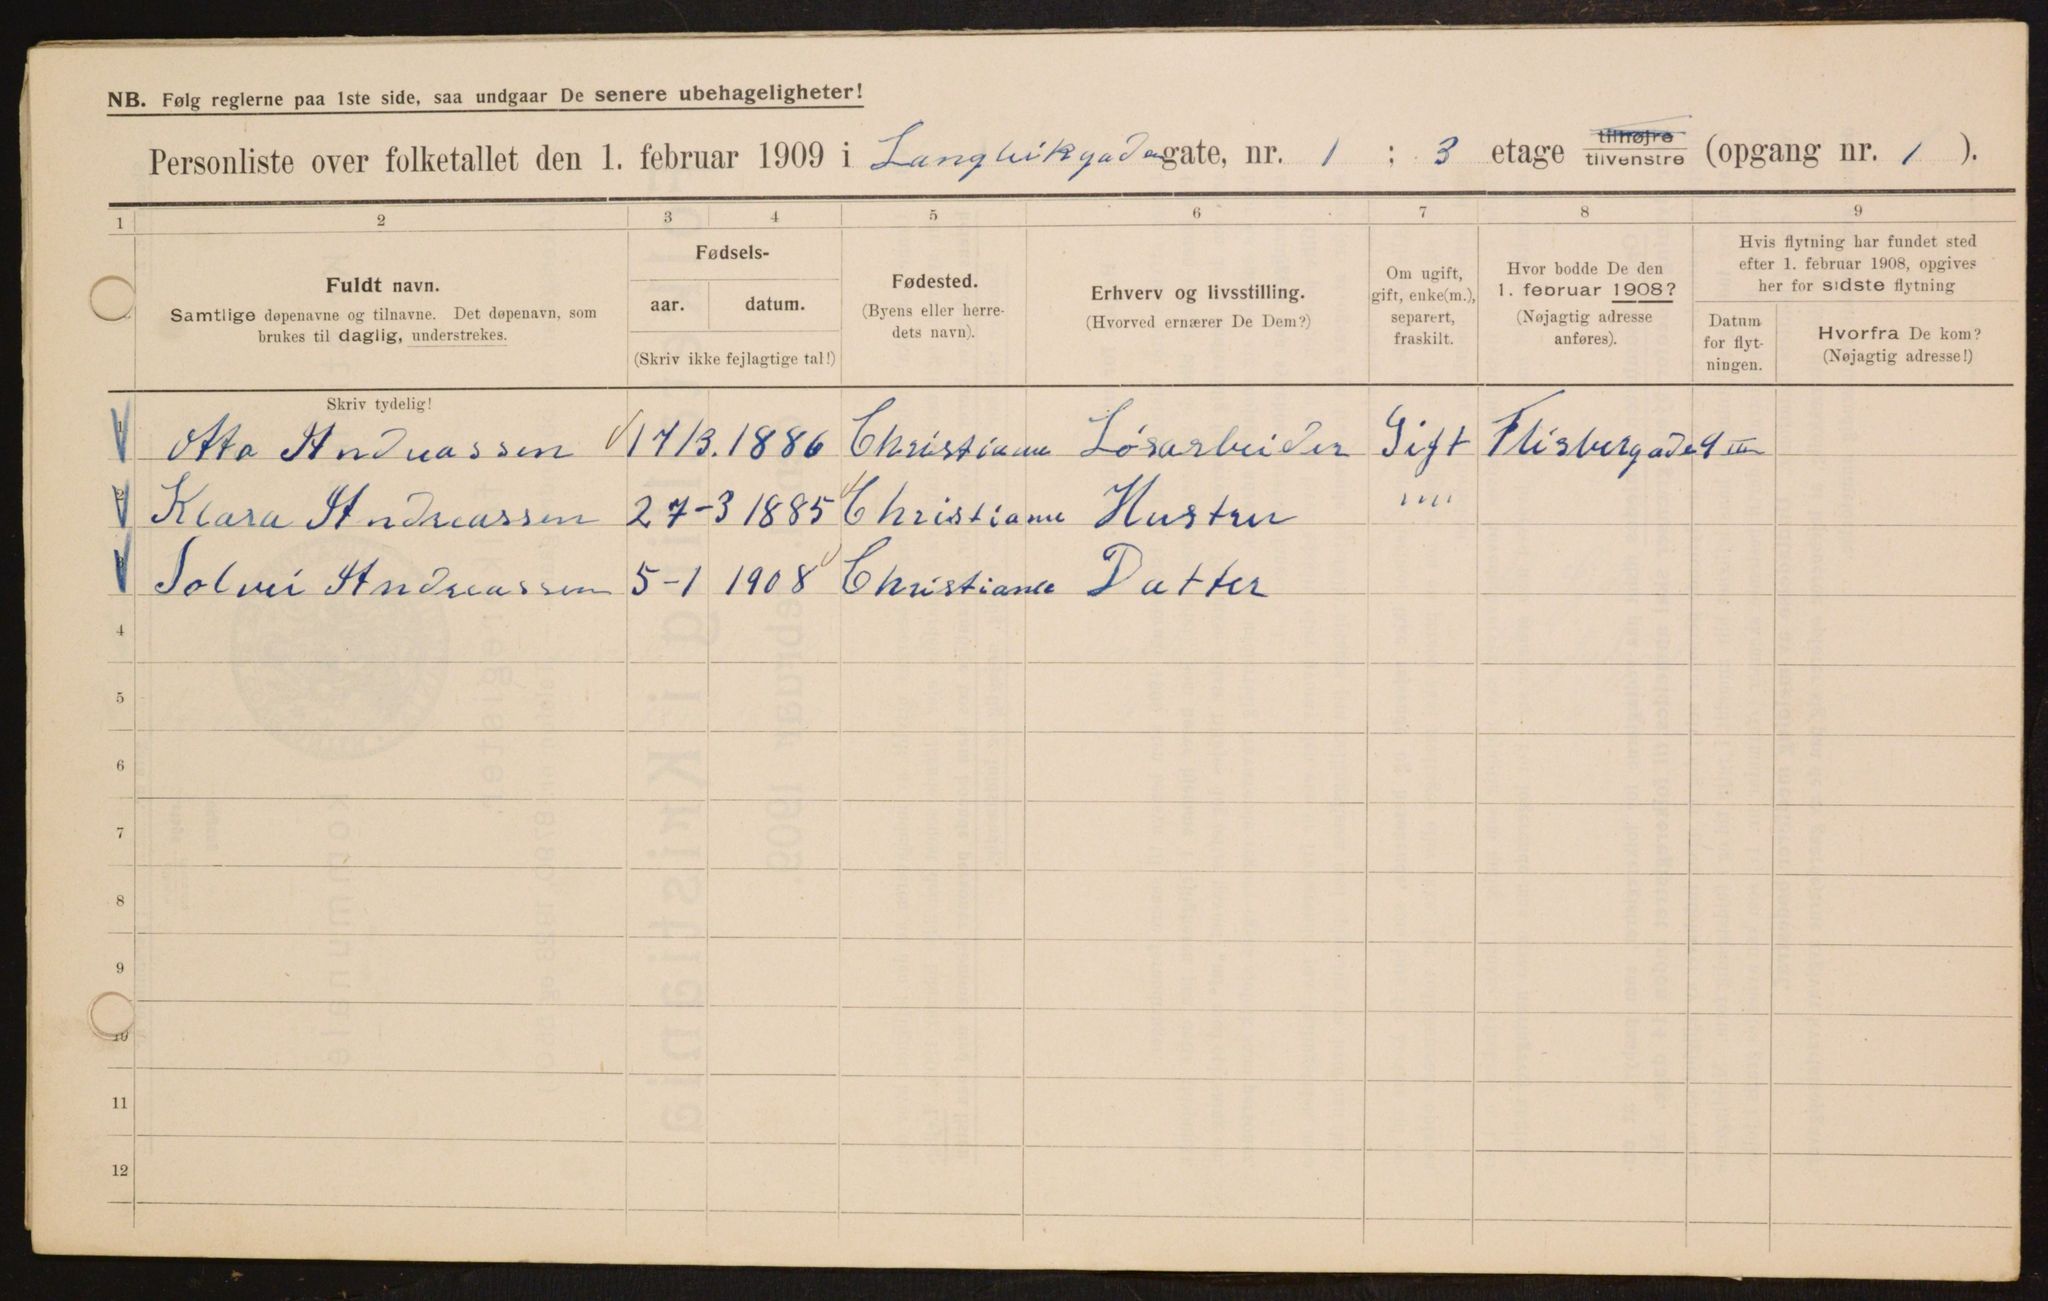 NB. Følg reglerne paa 1ste side, saa undgaar De senere ubehageligheter!
Personliste over folketallet den 1. februar 1909 i Langvikgadegate, nr. 1 ; 3 etage tilhøjre tilvenstre (opgang nr. 1 ).
1 2 3 4 5 6 7 8 9
Fuldt navn.
Samtlige døpenavne og tilnavne. Det døpenavn, som
brukes til daglig, understrekes.
Skriv tydelig!
Fødsels-
aar. datum.
(Skriv ikke fejlagtige tal!)
Fødested.
(Byens eller herre-
dets navn).
Erhverv og livsstilling.
(Hvorved ernærer De Dem?)
Om ugift,
gift, enke(m.),
separert,
fraskilt.
Hvor bodde De den
1. februar 1908?
(Nøjagtig adresse
anføres).
Hvis flytning har fundet sted
efter 1. februar 1908, opgives
her for sidste flytning
Datum
for flyt-
ningen.
Hvorfra De kom?
(Nøjagtig adresse!)
1 Otto Andreassen 17/3. 1886 Christiania Løsarbeider Gift Flisbergade 9 III
2 Klara Andreassen 27-3 1885 Christiania Hustru ""
3 Solvei Andreassen 5-1 1908 Christiania Datter
4
5
6
7
8
9
10
11
12